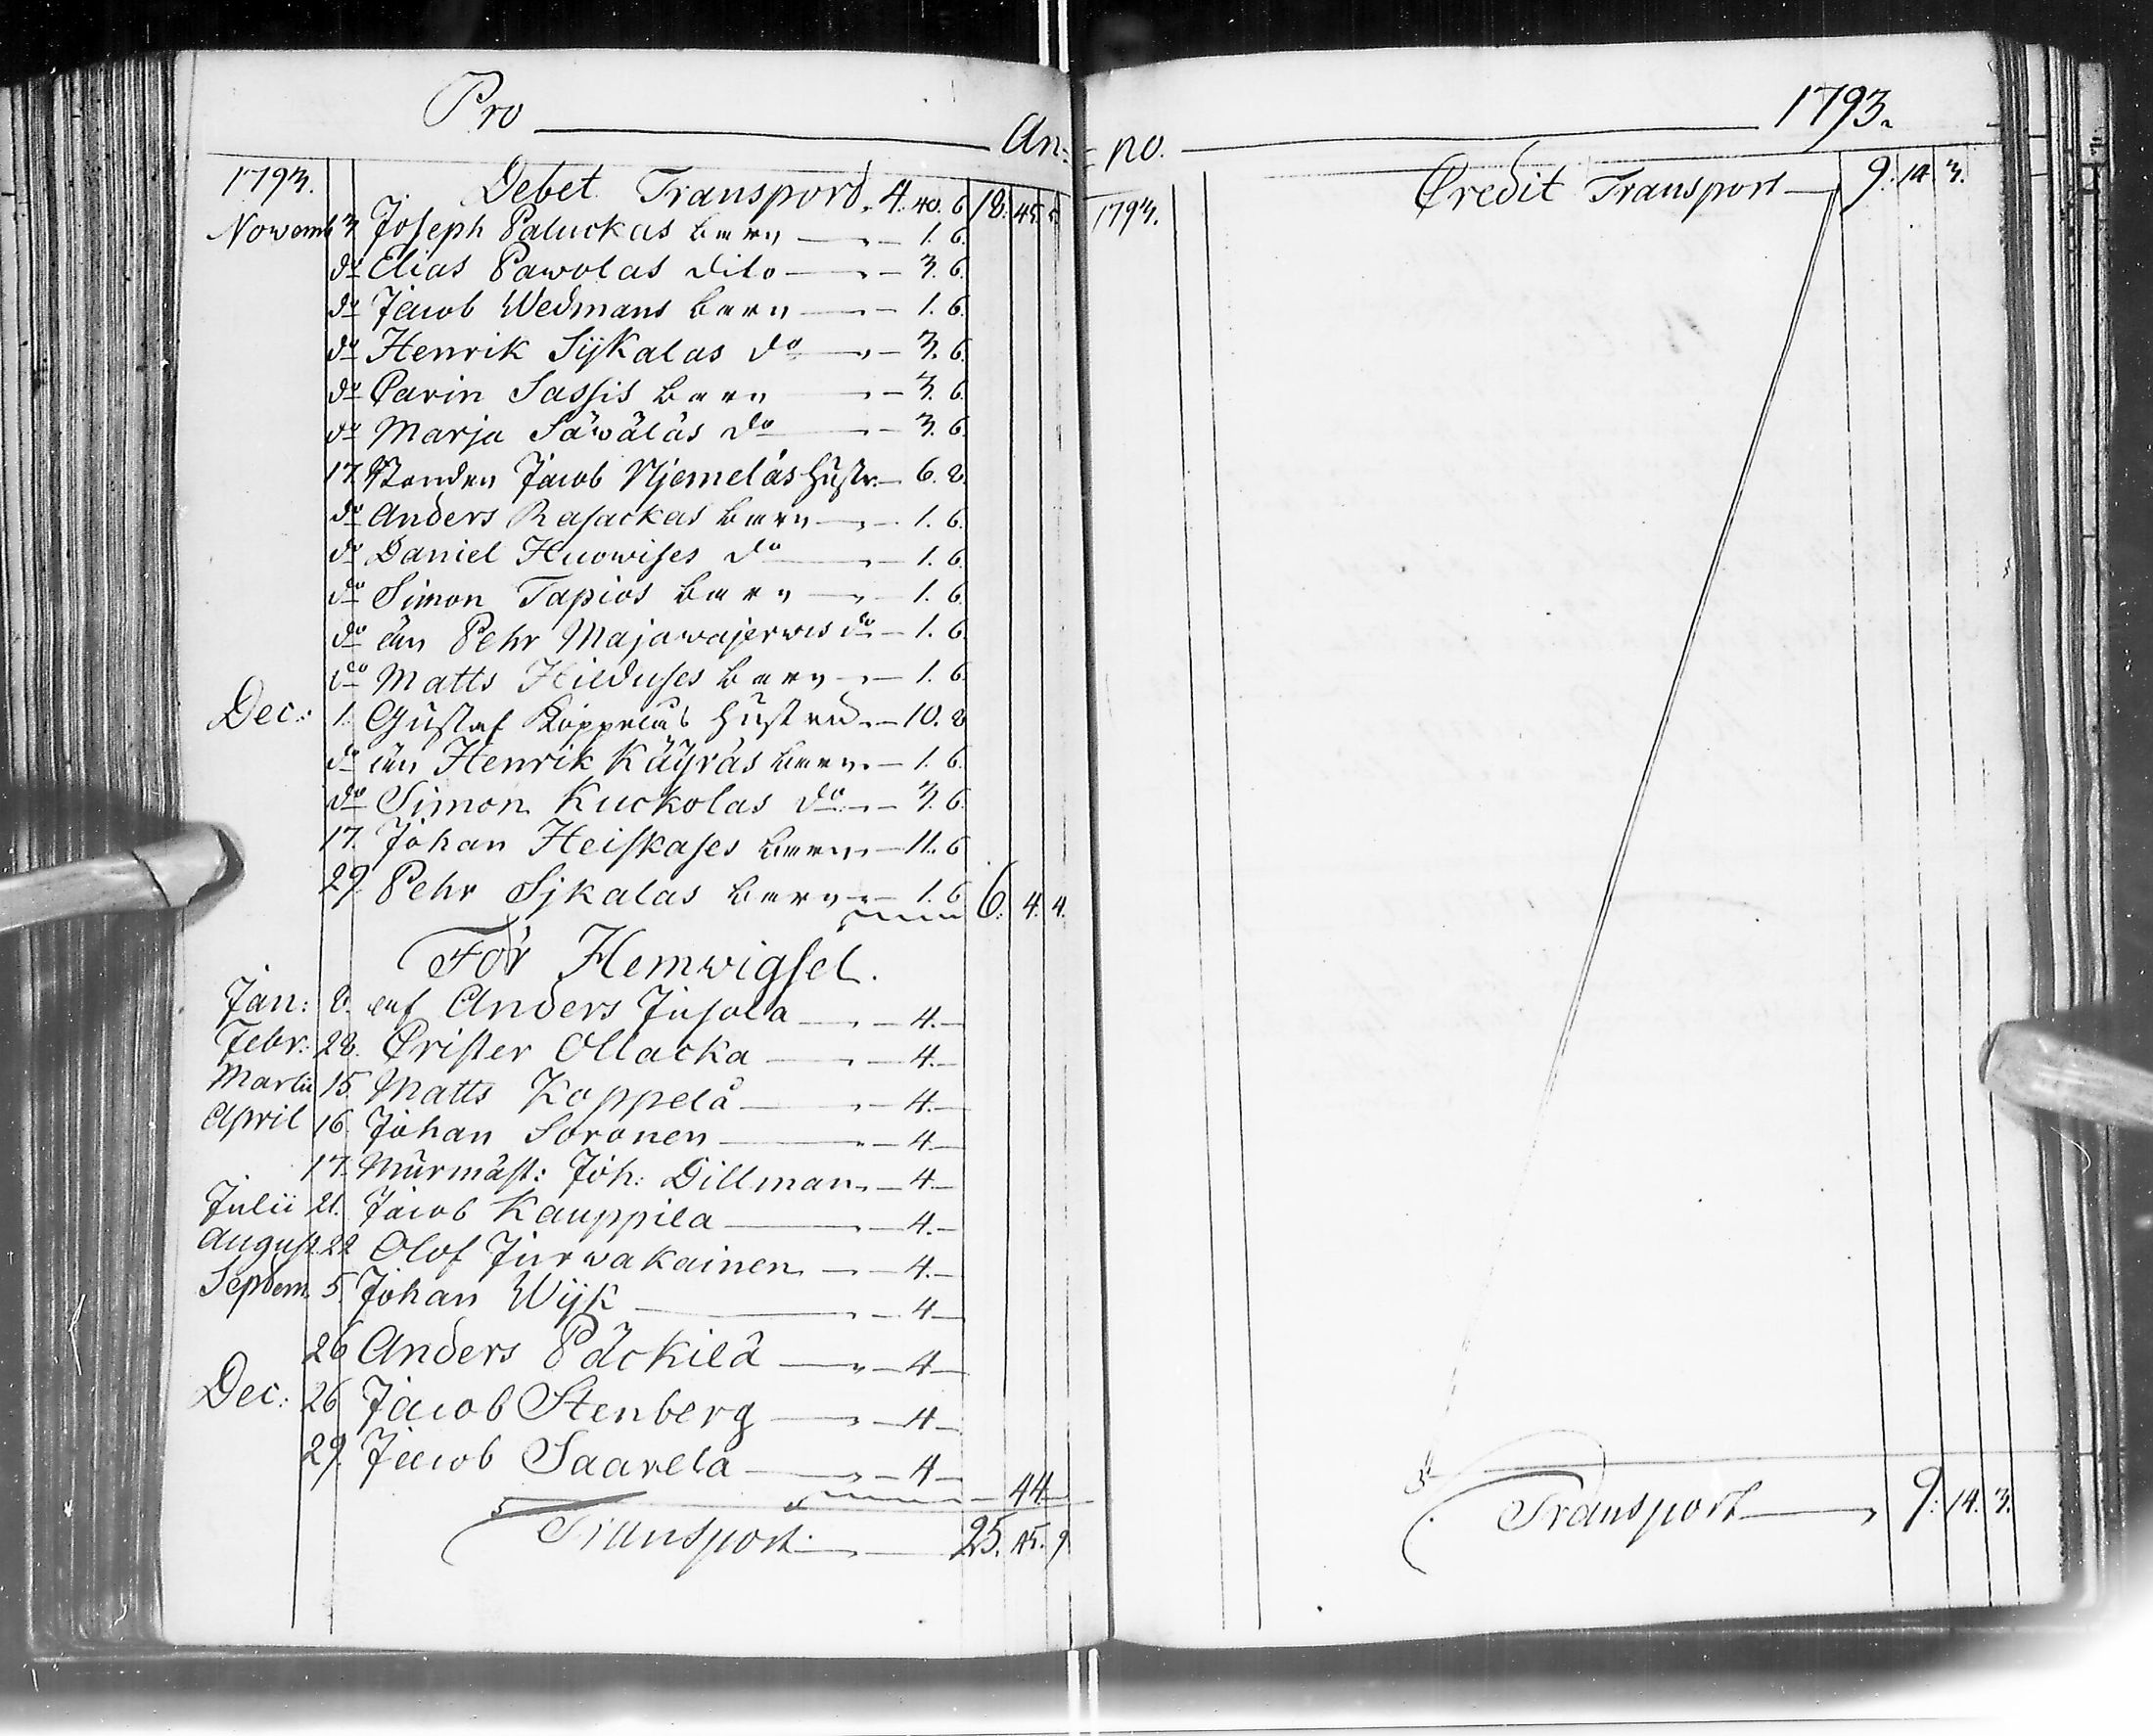 Pro An:
1793. Debet Transport. 4. 40. 6 18. 45. 5
Novemb 3 Joseph Paluckas barn 1. 6.
do Elias Pawolas dito 3. 6.
do Jacob Wedmans barn 1. 6.
do Henrik Sijkalas do 3. 6.
do Carin Sassis barn 3. 6.
do Marja Säwäläs do 3. 6.
17. Bonden Jacob Njemeläs hustr. 6. 8.
do Anders Rasackas barn 1. 6.
do Daniel Huowises do 1. 6.
do Simon Tapios barn 1. 6.
do än Pehr Majawajerwis do 1. 6.
do Matts Hilduses barn 1. 6.
Dec: 1. Gustaf Koppelas hustru 10. 8
do än Henrik Käyräs barn 1. 6.
do Simon Kuckolas do 3. 6.
17. Johan Heiskases barn 11. 6
29. Pehr Sjkalas barn 1. 6 6. 4. 4.
För Hemwigsel.
Jan: 8. af Anders Jusola 4.
Febr: 28. Crister Ollacka 4.
Martii 15 Matts Koppela 4.
April 16. Johan Soronen 4
17. Murmäst: Joh: Dillman 4
Julii 21. Jacob Kauppila 4.
August. 22 Olof Jurwakainen 4.
Septem. 5. Johan Wijk 4
26 Anders Päckilä 4
Dec: 26 Jacob Stenberg 4
29. Jacob Saarela 4 44
Transport 25. 45. 9
no. 1793.
1793. Credit Transport 9. 14 3.
Transport 9. 14. 3.